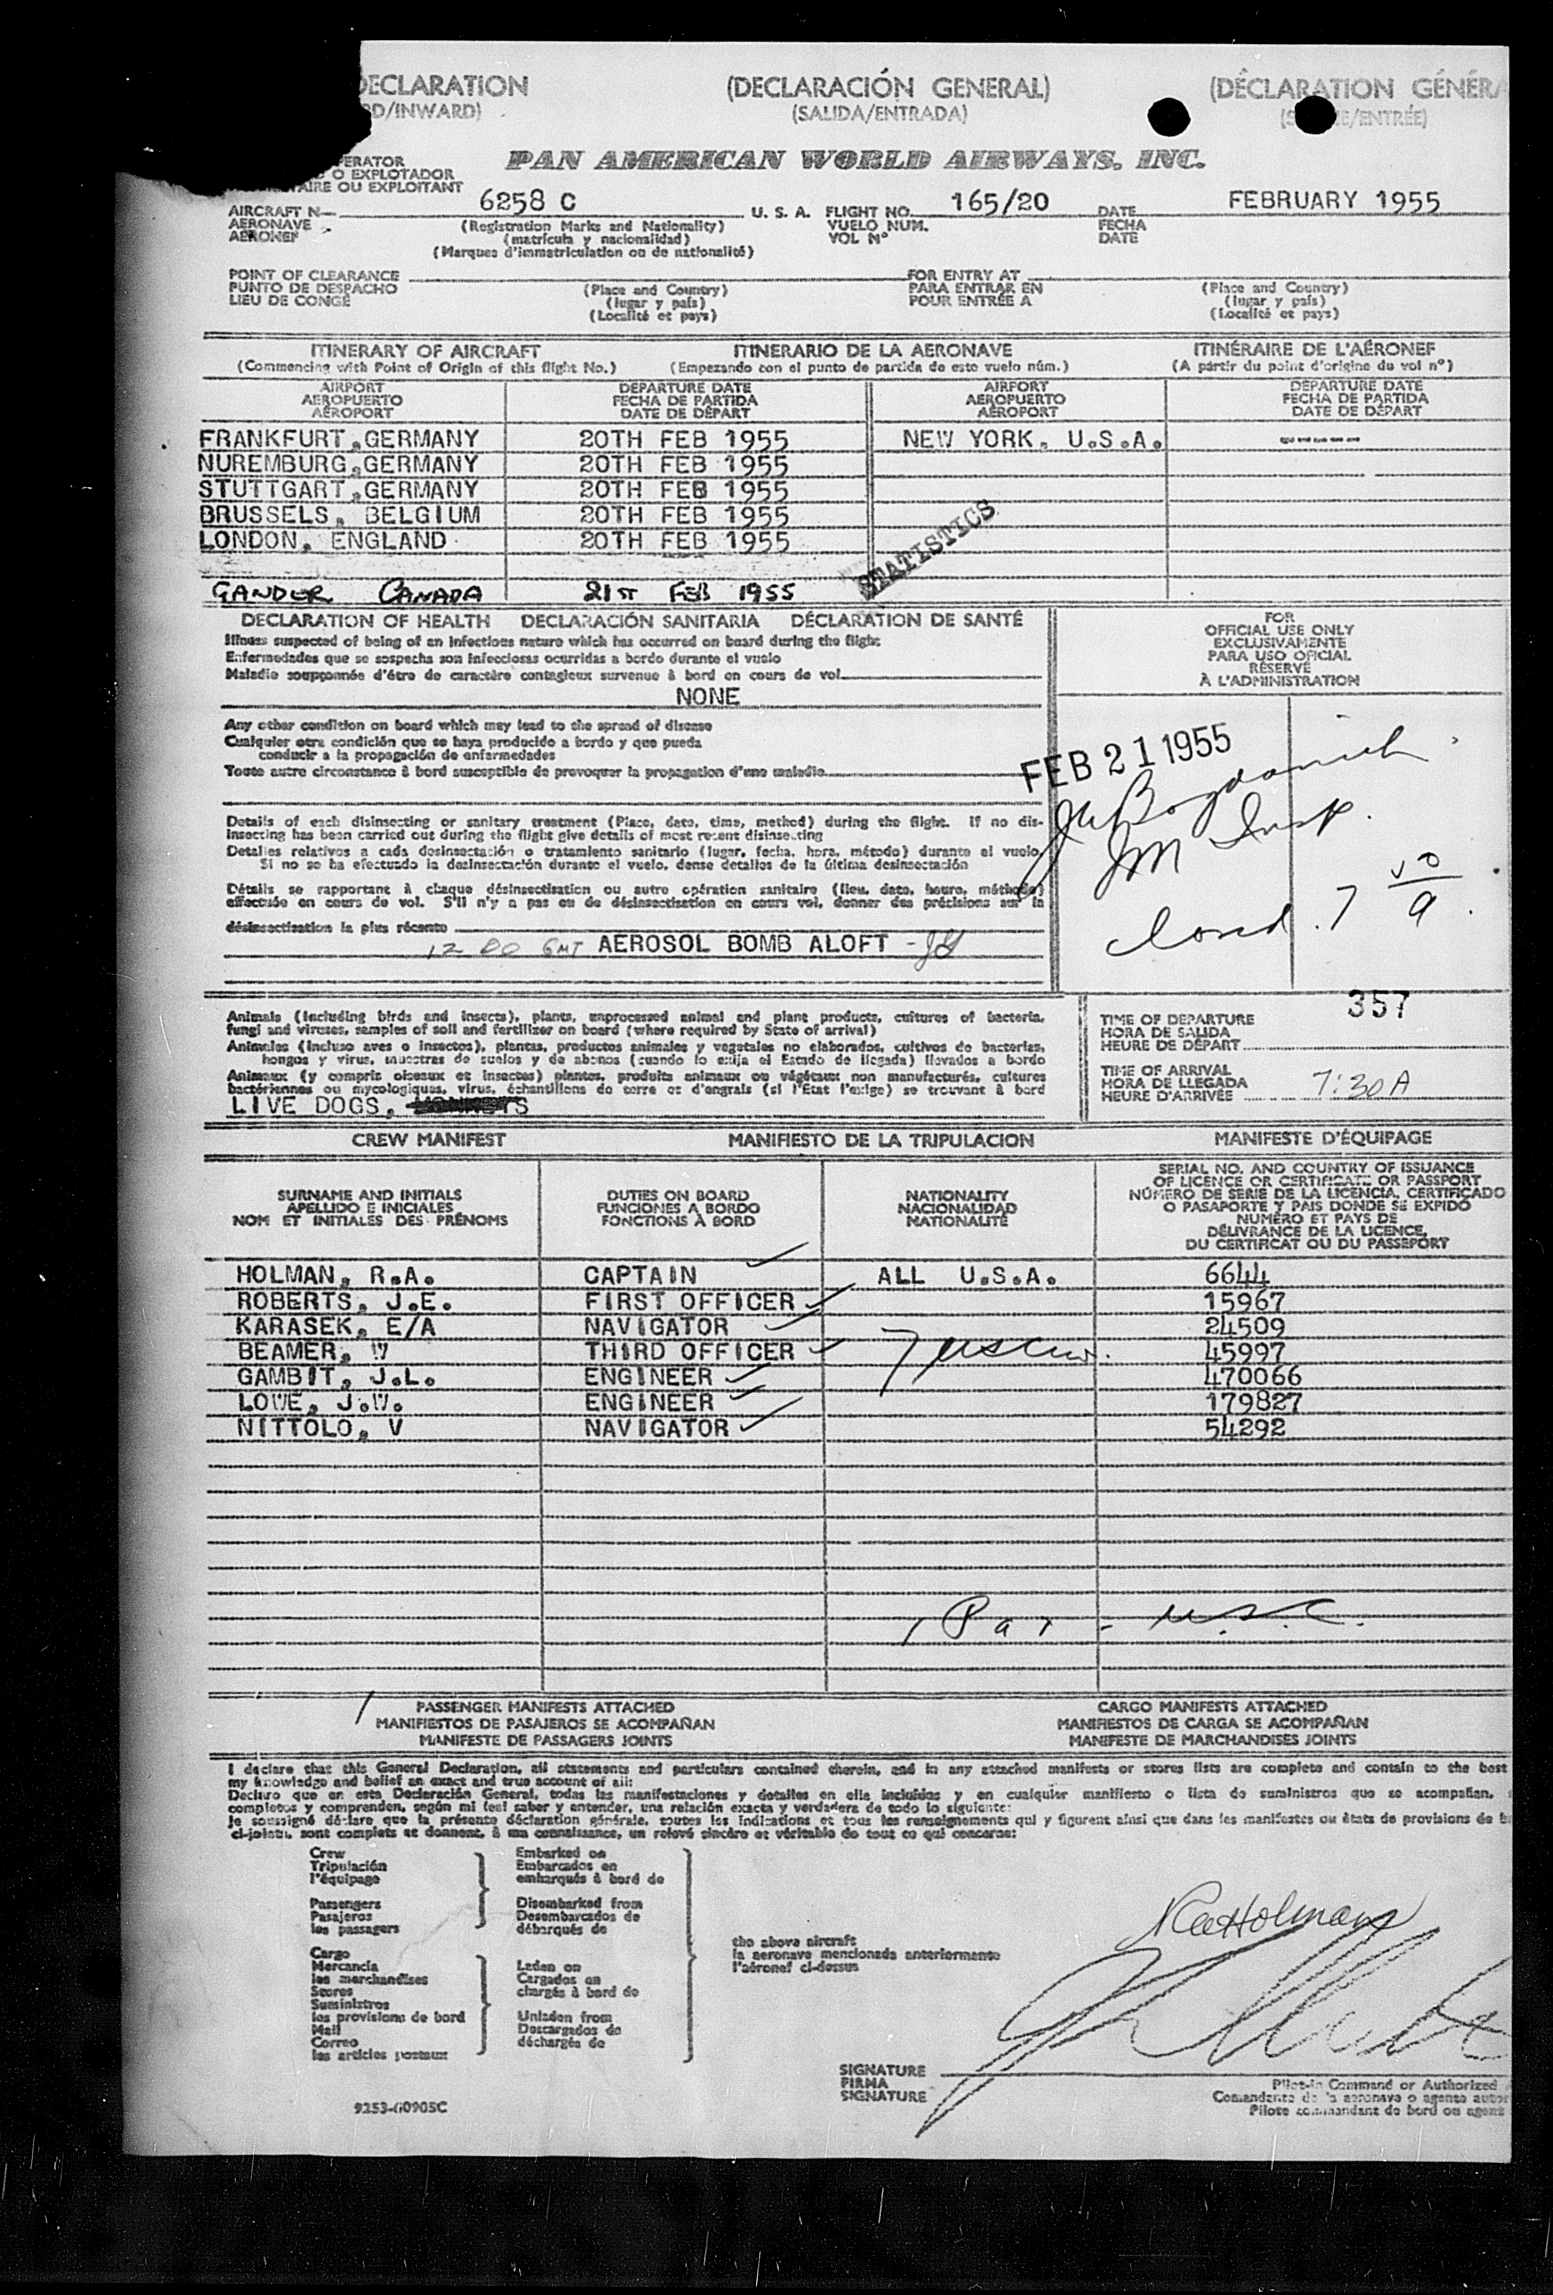 DECLARATION (DECLARACIÓN GENERAL) (DÉCLARATION GÉNÉRA
RD/INWARD) (SALIDA/ENTRADA) /ENTRÉE)
PERATOR PAN AMERICAN WORLD AIRWAYS, INC.
O EXPLOTADOR
TAIRE OU EXPLOITANT
AIRCRAFT N 6258 C U. S. A. FLIGHT NO. 165/20 DATE FEBRUARY 1955
AERONAVE (Registration Marks and Nationality) VUELO NUM. FECHA
AERONEF (matrícula y nacionalidad) VOL Nº DATE
(Marques d'immatriculation ou de nationalité)
POINT OF CLEARANCE FOR ENTRY AT
PUNTO DE DESPACHO (Place and Country) PARA ENTRAR EN (Place and Country)
LIEU DE CONGÉ (lugar y país) POUR ENTRÉE A (lugar y país)
(Localité et pays) (Localité et pays)
ITINERARY OF AIRCRAFT ITINERARIO DE LA AERONAVE ITINÉRAIRE DE L'AÉRONEF
(Commencing with Point of Origin of this flight No.) (Empezando con el punto de partida de este vuelo núm.) (A pártir du point d'origine du vol nº)
AIRPORT DEPARTURE DATE AIRPORT DEPARTURE DATE
AEROPUERTO FECHA DE PARTIDA AEROPUERTO FECHA DE PARTIDA
AÉROPORT DATE DE DÉPART AÉROPORT DATE DE DÉPART
FRANKFURT,GERMANY 20TH FEB 1955 NEW YORK, U.S.A. ------
NUREMBURG,GERMANY 20TH FEB 1955
STUTTGART,GERMANY 20TH FEB 1955
BRUSSELS, BELGIUM 20TH FEB 1955
LONDON, ENGLAND 20TH FEB 1955
STATISTICS
GANDER CANADA 21ST FEB 1955
DECLARATION OF HEALTH DECLARACIÓN SANITARIA DÉCLARATION DE SANTÉ
Illness suspected of being of an infectious nature which has occurred on board during the flight
Enfermedades que se sospecha son infecciosas ocurridas a bordo durante el vuelo
Maladie soupçonnée d'étre de caractère contagieux survenue à bord en cours de vol
NONE
FOR
OFFICIAL USE ONLY
EXCLUSIVAMENTE
PARA USO OFICIAL
RÉSERVÉ
À L'ADMINISTRATION
Any other condition on board which may lead to the spread of disease
Cualquier otra condición que se haya producido a bordo y que pueda
conducir a la propagación de enfermedades
Toute autre circonstance à bord susceptible de provoquer la propagation d'une maladie
FEB 21 1955
J Bogdanich
Im Insp.
Details of each disinsecting or sanitary treatment (Place, date, time, method) during the flight. If no dis-
insecting has been carried out during the flight give details of most recent disinsecting
Detalles relativos a cada desinsectación o tratamiento sanitario (lugar, fecha, hora, método) durante el vuelo.
Si no se ha efectuado la desinsectación durante el vuelo, dense detalles de la última desinsectación
Détails se rapportant à chaque désinsectisation ou autre opération sanitaire (lieu, date, heure, méthode)
effectuée en cours de vol. S'il n'y a pas eu de désinsectisation en cours vol, donner des précisions sur la
désinsectisation la plus récente
12 00 GMT AEROSOL BOMB ALOFT -
closed. 7 50/a.
357
Animals (including birds and insects), plants, unprocessed animal and plant products, cultures of bacteria,
fungi and viruses, samples of soil and fertilizer on board (where required by State of arrival)
Animales (incluso aves e insectos), plantas, productos animales y vegetales no elaborados, cultivos de bacterias,
hongos y virus, muestras de suelos y de abonos (cuando lo exija el Estado de llegada) llevados a bordo
Animaux (y compris oiseaux et insectes) plantes, produits animaux ou végétaux non manufacturés, cultures
bactériennes ou mycologiques, virus, échantillons de terre et d'engrais (si l'Etat l'exige) se trouvant à bord
LIVE DOGS, MONKEYS
TIME OF DEPARTURE
HORA DE SALIDA
HEURE DE DÉPART
TIME OF ARRIVAL
HORA DE LLEGADA 7:30A
HEURE D'ARRIVÉE
CREW MANIFEST MANIFIESTO DE LA TRIPULACION MANIFESTE D'ÉQUIPAGE
SURNAME AND INITIALS DUTIES ON BOARD NATIONALITY
APELLIDO E INICIALES FUNCIONES A BORDO NACIONALIDAD
NOM ET INITIALES DES PRÉNOMS FONCTIONS À BORD NATIONALITÉ
SERIAL NO. AND COUNTRY OF ISSUANCE
OF LICENCE OR CERTIFICATE OR PASSPORT
NÚMERO DE SERIE DE LA LICENCIA, CERTIFICADO
O PASAPORTE Y PAIS DONDE SE EXPIDO
NUMÉRO ET PAYS DE
DÉLIVRANCE DE LA LICENCE,
DU CERTIFICAT OU DU PASSEPORT
HOLMAN, R.A. CAPTAIN ALL U.S.A. 6644
ROBERTS, J.E. FIRST OFFICER 15967
KARASEK, E/A NAVIGATOR 24509
BEAMER, W THIRD OFFICER 7 45997
GAMBIT, J.L. ENGINEER 470066
LOWE, J.W. ENGINEER 179827
NITTOLO, V NAVIGATOR 54292
1 Pax - U.S.C.
PASSENGER MANIFESTS ATTACHED CARGO MANIFESTS ATTACHED
MANIFIESTOS DE PASAJEROS SE ACOMPAÑAN MANIFIESTOS DE CARGA SE ACOMPAÑAN
MANIFESTE DE PASSAGERS JOINTS MANIFESTE DE MARCHANDISES JOINTS
I declare that this General Declaration, all statements and particulars contained therein, and in any attached manifests or stores lists are complete and contain to the best
my knowledge and belief an exact and true account of all:
Declaro que en esta Declaración General, todas las manifestaciones y detalles en ella incluídos y en cualquier manifiesto o lista de suministros que se acompañan,
completos y comprenden, según mi leal saber y entender, una relación exacta y verdadera de todo lo siguiente:
Je soussigné déclare que la présente déclaration générale, toutes les indications et tous les renseignements qui y figurent ainsi que dans les manifestes ou états de provisions de b
ci-joints, sont complets et donnent, à ma connaissance, un relevé sincère et véritable de tout ce qui concerne:
Crew Embarked on
Tripulación Embarcados en
l'équipage embarqués à bord de
Passengers Disembarked from
Pasajeros Desembarcados de
les passagers débarqués de
the above aircraft
la aeronave mencionada anteriormente
l'aéronef ci-dessus
Cargo
Mercancía Laden on
les marchandises Cargados en
Stores chargés à bord de
Suministros
les provisions de bord Unladen from
Mail Descargados de
Correo déchargés de
les articles postaux
RAHolman
SIGNATURE
FIRMA
SIGNATURE
Pilot-in Command or Authorized
Comandante de la aeronave o agente autor
Pilote commandant de bord ou agent
9253-60905C